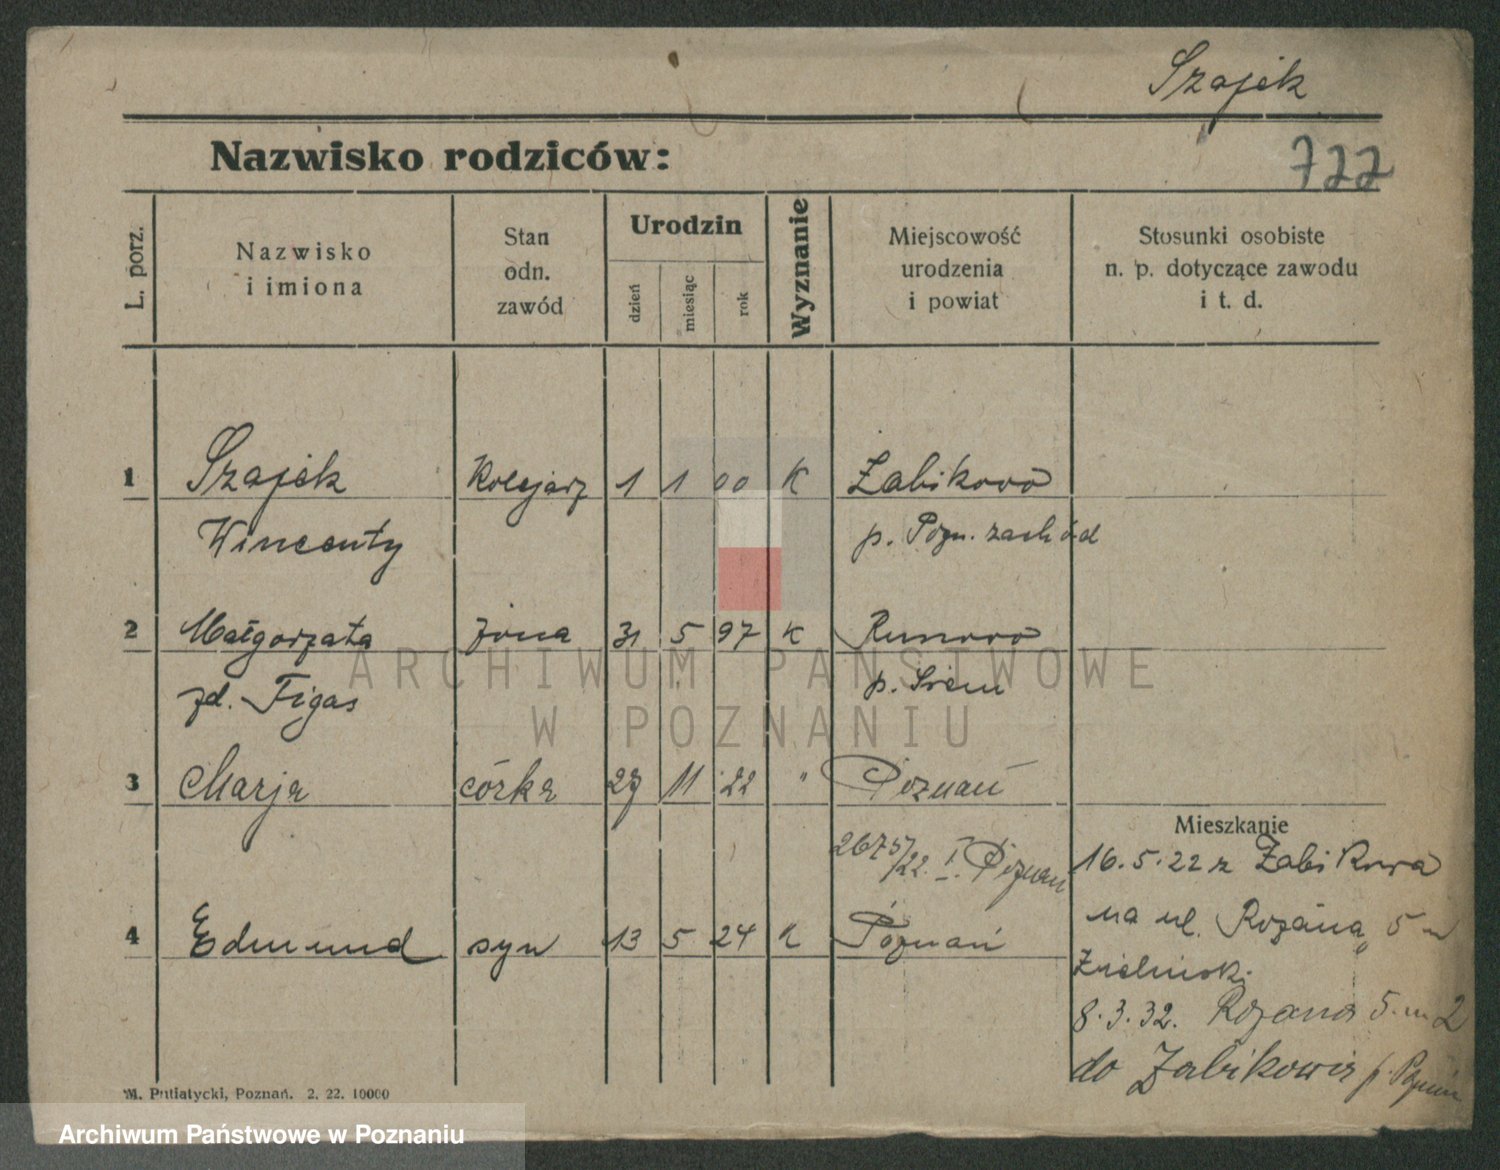 Szajek
Nazwisko rodziców:
722
L. porz.
Nazwisko
i imiona
Stan
odn.
zawód
Urodzin
dzień
miesiąc
rok
Wyznanie
Miejscowość
urodzenia
i powiat
Stosunki osobiste
n. p. dotyczące zawodu
i t. d.
1 Szajek Kolejarz 1 1 00 K Żabikowo
Wincenty p. Pozn. zachód
2 Małgorzata żona 31 5 97 K Runowo
zd. Figas p. Śrem
ARCHIWUM PAŃSTWOWE
W POZNANIU
3 Marja córka 27 11 22 " Poznań
Mieszkanie
2675/22. I. Poznań
16.5.22 z Żabikowa
na ul. Rożana 5
4 Edmund syn 13 5 24 K Poznań
Zieliński
8.3.32. Rożana 5 m 2
do Żabikowa p. Poznań
M. Putiatycki, Poznań. 2. 22. 10000
Archiwum Państwowe w Poznaniu